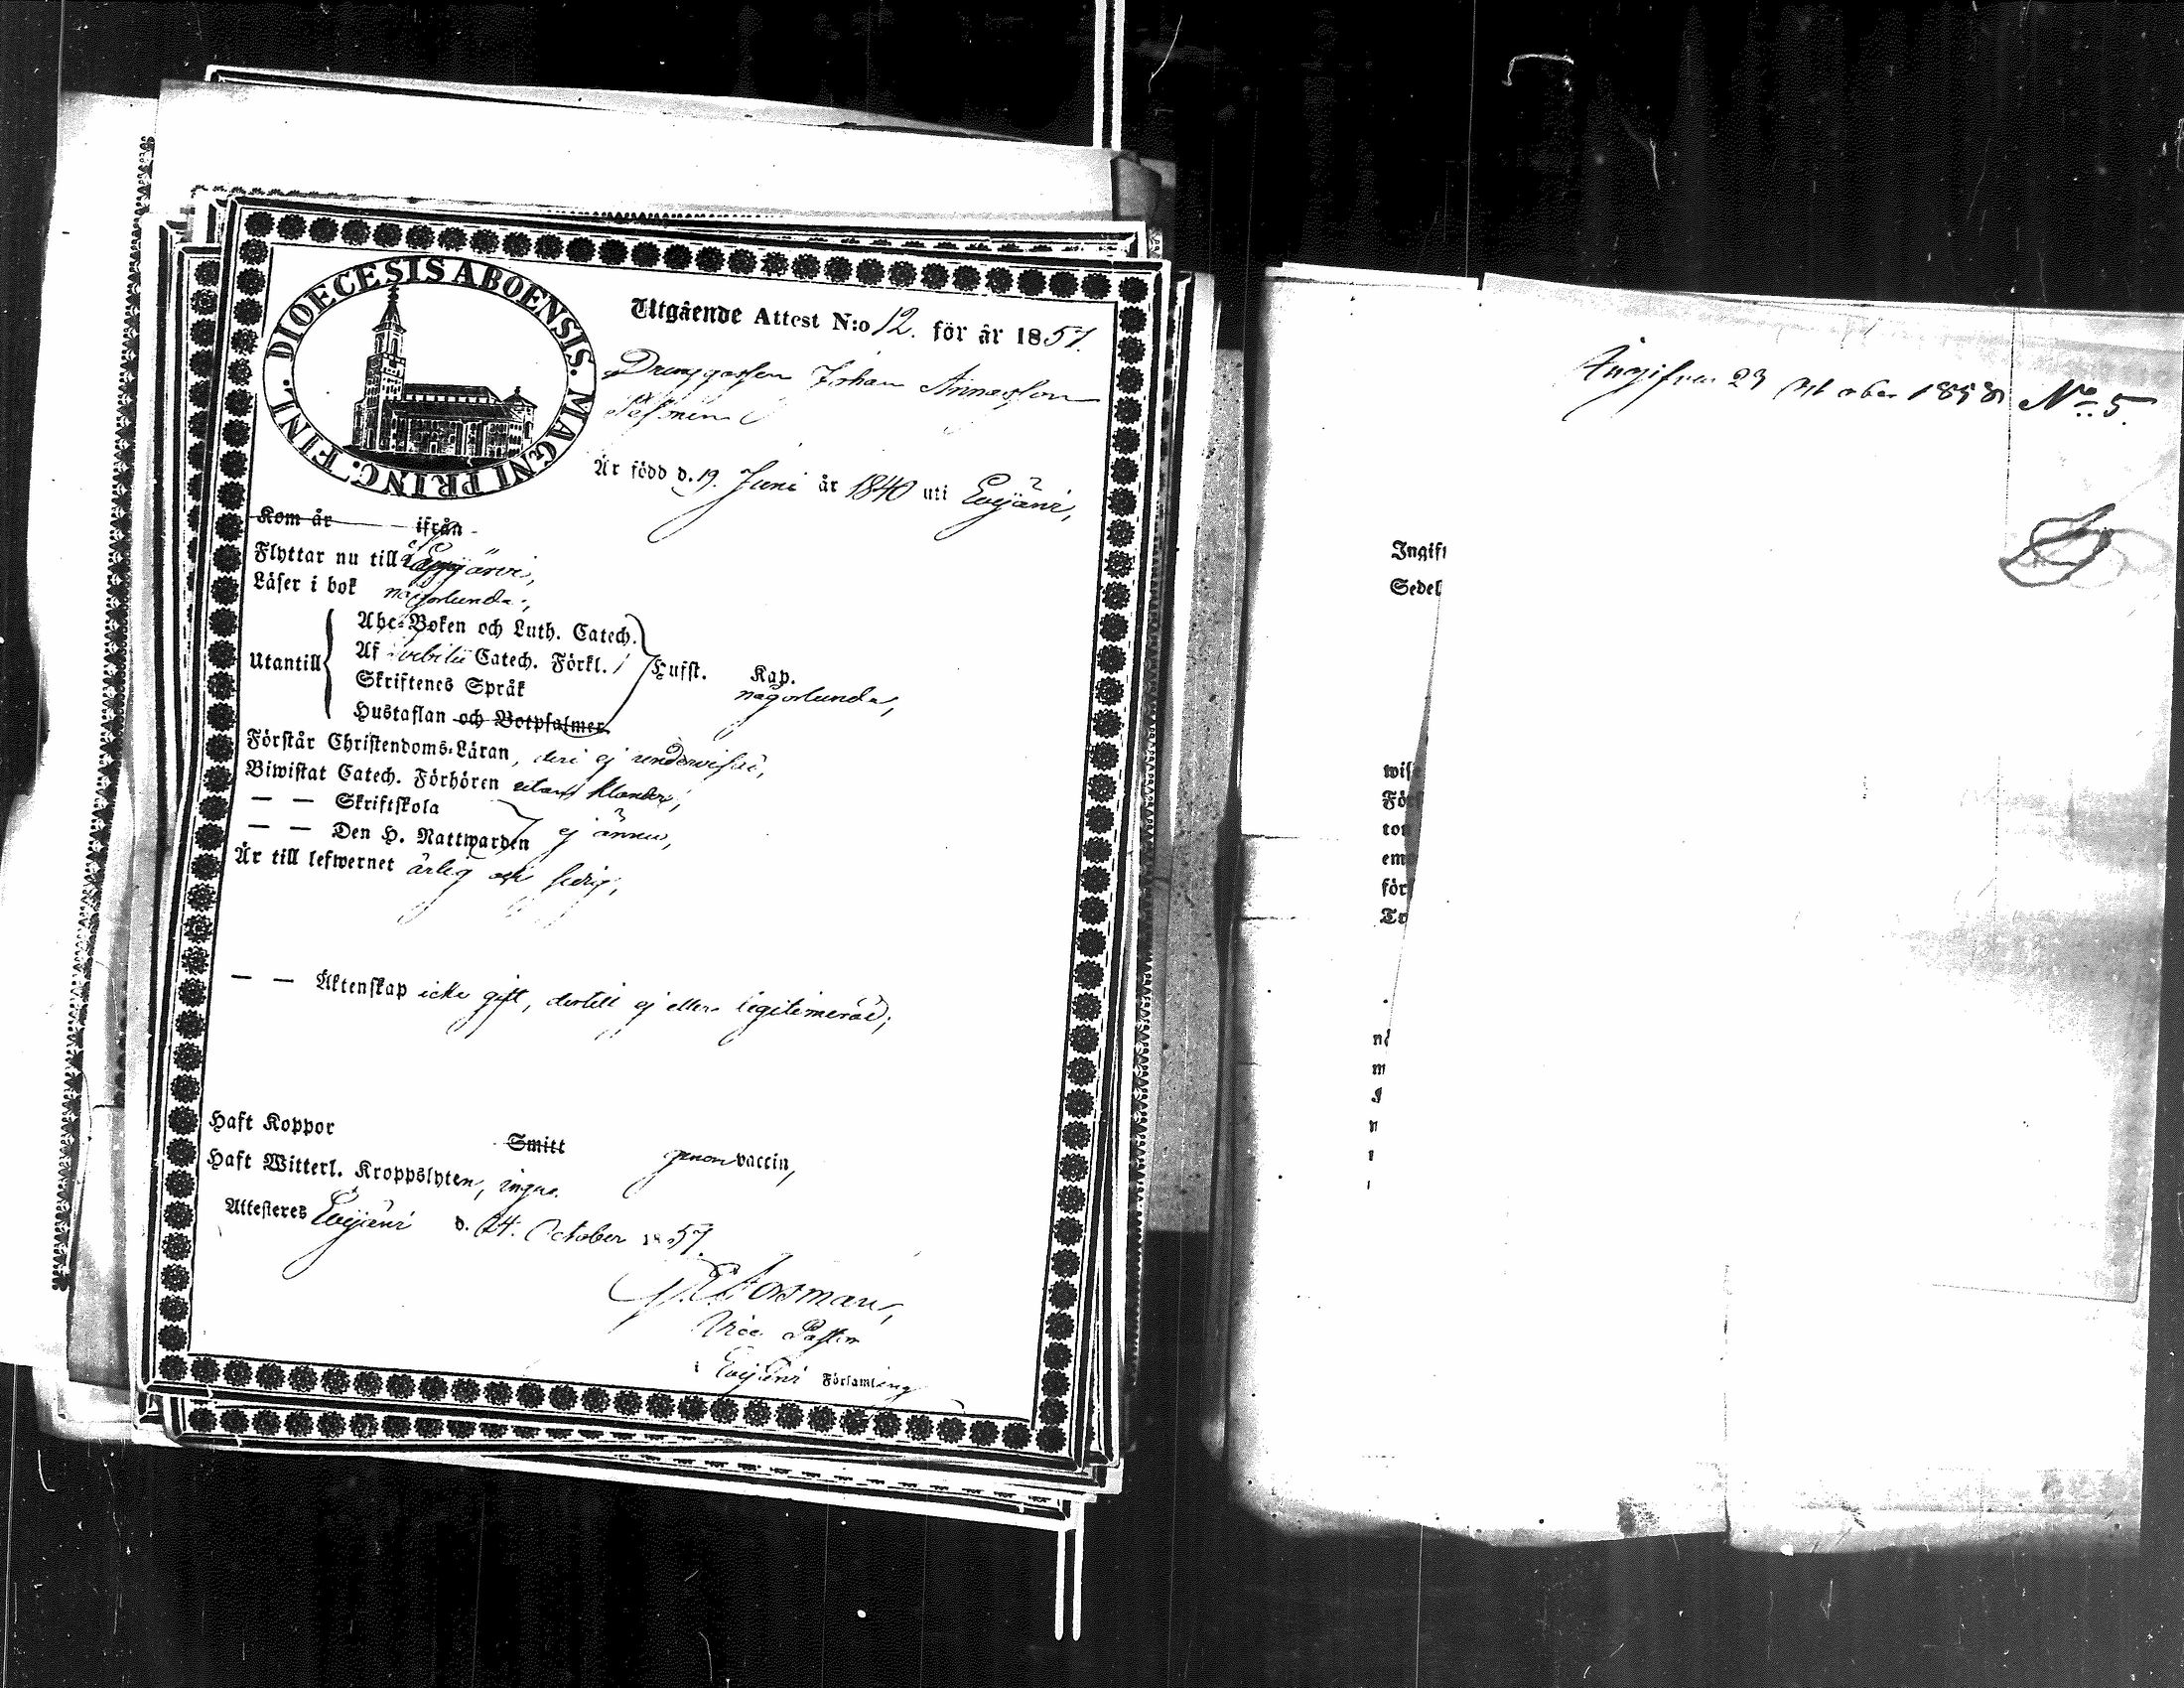 DIOECESIS ABOENSIS. MAGNI PRINC. FINL.
Utgående Attest N:o 12. för år 1857.
Drenggossen Johan Annasson
Är född d. 19. Juni år 1840 uti Evijärvi,
Kom år ifrån
Flyttar nu till Lappajärvi,
Läser i bok någorlunda,
Utantill
Abc-Boken och Luth. Catech.
Af Svebilii Catech. Förkl.
Skriftenes Språk
Hustaflan och Botpsalmer
Hufst. Kap.
någorlunda,
Förstår Christendoms-Läran, deri ej underviser,
Biwistat Catech. Förhören utan klander,
— — Skriftskola
— — Den H. Nattwarden ej ännu,
Är till lefwernet ärlig och sedig,
— — Äktenskap icke gift, dertill ej eller legitimerad;
Haft Koppor Smitt genom vaccin,
Haft Witterl. Kroppslyten, inga.
Attesteres Evijärvi d. 24. October 1857.
Forsman,
Vice Pastor
i Evijärvi Församling
Angifven 23 October 1858 No 5.
Ingift
Sedel
wis
För
ton
em
för
Tr